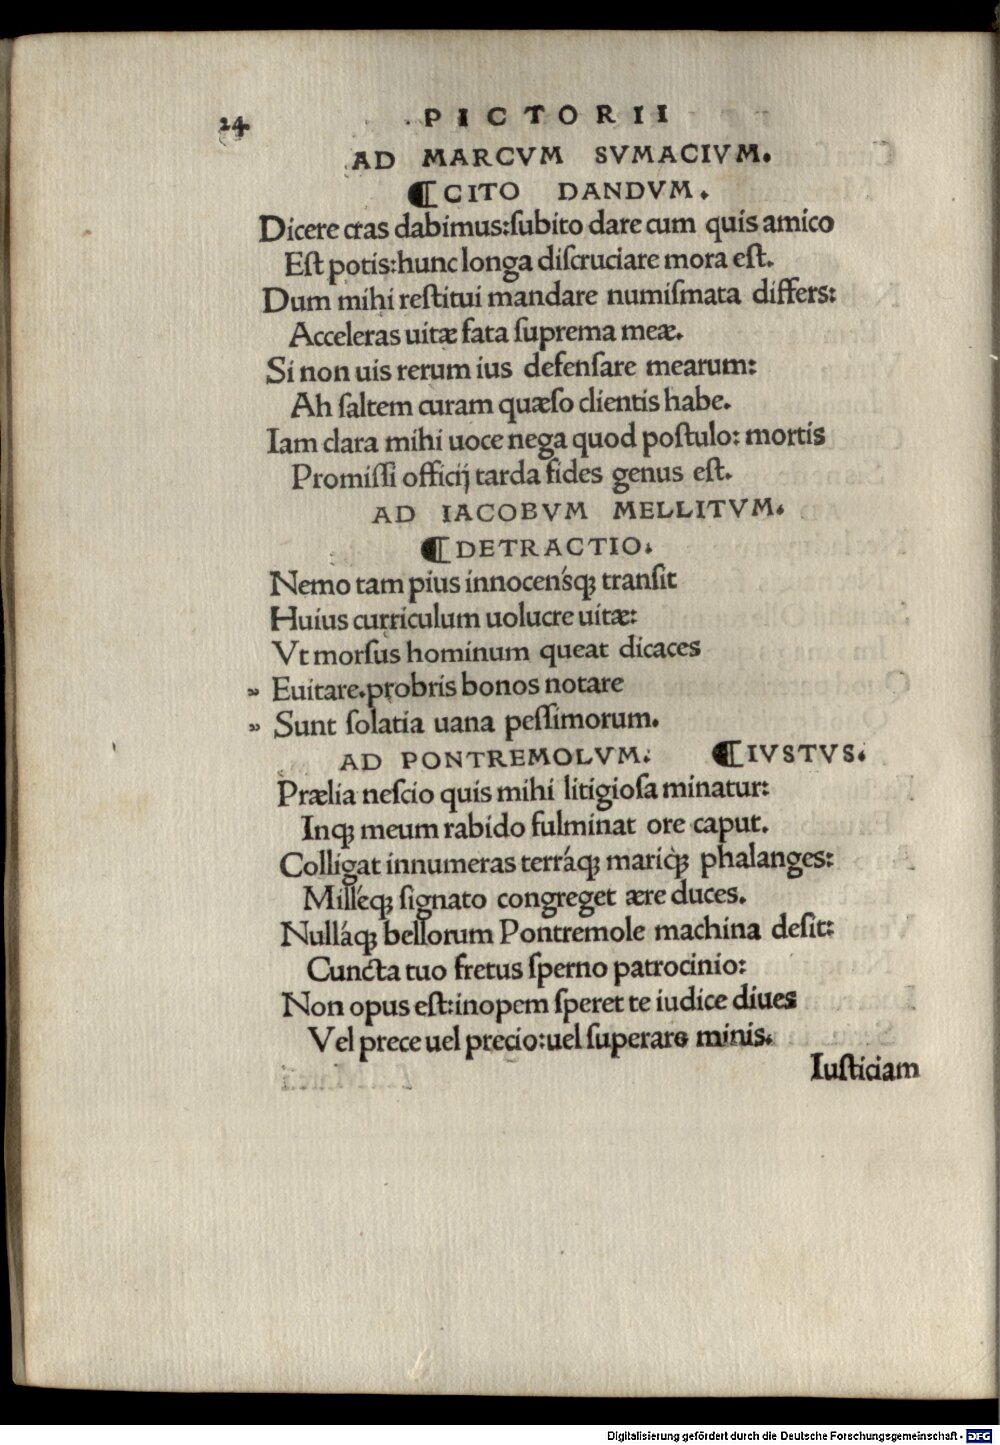 24 PICTORII
AD MARCVM SVMACIVM.
¶CITO DANDVM.
Dicere cras dabimus:ſubito dare cum quis amico
Eſt potis:hunc longa diſcruciare mora eſt.
Dum mihi reſtitui mandare numiſmata differs:
Acceleras uitæ fata ſuprema meæ.
Si non uis rerum ius defenſare mearum:
Ah ſaltem curam quæſo clientis habe.
Iam clara mihi uoce nega quod poſtulo: mortis
Promiſſi officij tarda fides genus eſt.
AD IACOBVM MELLITVM.
¶DETRACTIO.
Nemo tam pius innocénsqꝫ tranſit
Huius curriculum uolucre uitæ:
Vt morſus hominum queat dicaces
» Euitare.probris bonos notare
» Sunt ſolatia uana peſſimorum.
AD PONTREMOLVM. ¶IVSTVS.
Prælia neſcio quis mihi litigioſa minatur:
Inqꝫ meum rabido fulminat ore caput.
Colligat innumeras terráqꝫ mariqꝫ phalanges:
Milléqꝫ ſignato congreget ære duces.
Nulláqꝫ bellorum Pontremole machina deſit:
Cuncta tuo fretus ſperno patrocinio:
Non opus eſt:inopem ſperet te iudice diues
Vel prece uel precio:uel ſuperare minis.
Iuſticiam
Digitalisierung gefördert durch die Deutsche Forschungsgemeinschaft - DFG